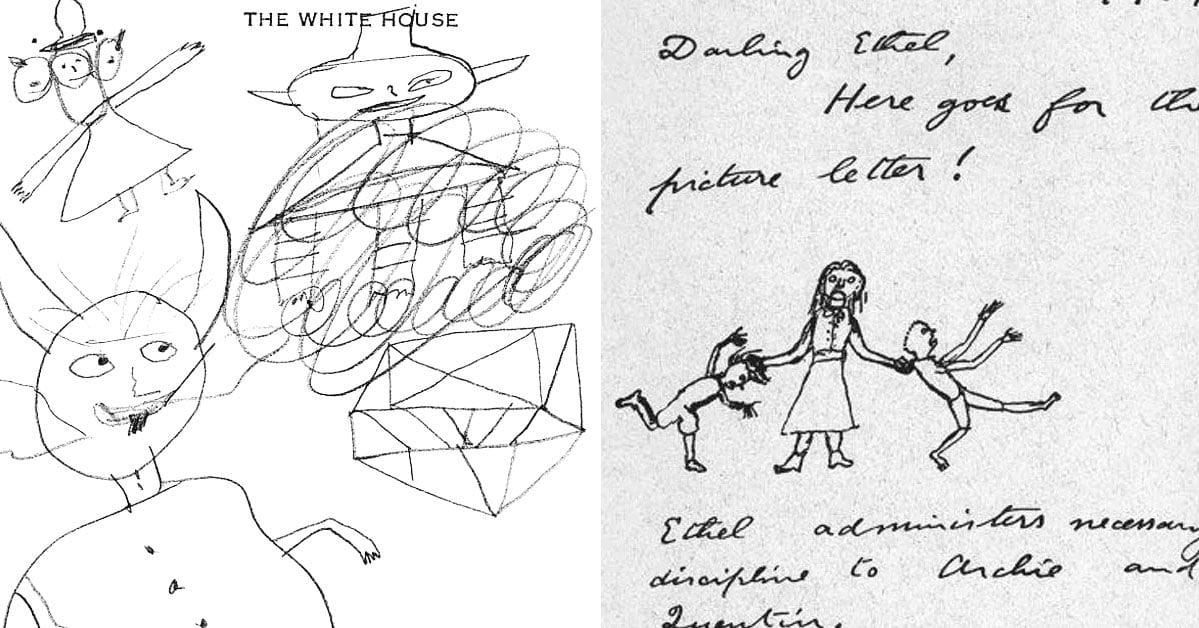 THE WHITE HOUSE
Darling Ethel,
Here goes for
picture letter!
Ethel administers necessary
discipline to Archie and
Quentin.